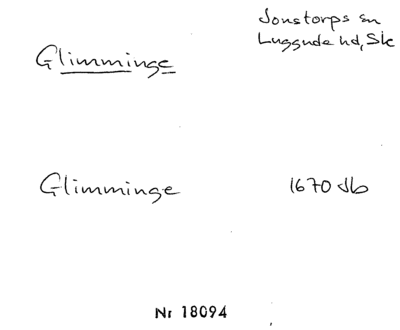 Glimminge
Jonstorps sn
Luggude hd, Sk
Glimminge
1670 Jb
Nr 18094